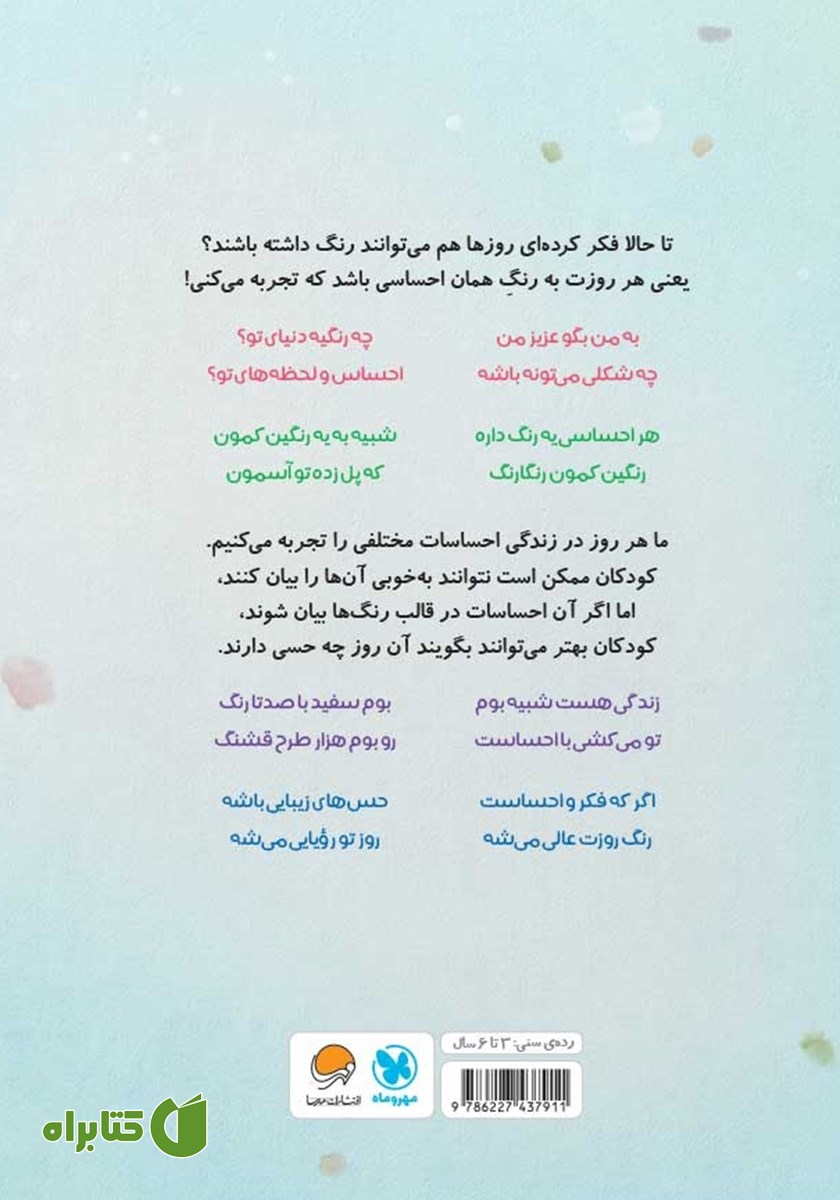 تا حالا فکر کرده‌ای روزها هم می‌توانند رنگ داشته باشند؟
یعنی هر روزت به رنگِ همان احساسی باشد که تجربه می‌کنی!
به من بگو عزیز من چه رنگیه دنیای تو؟
چه شکلی می‌تونه باشه احساس و لحظه‌های تو؟
هر احساسی یه رنگ داره شبیه به یه رنگین کمون
رنگین کمون رنگارنگ که پل زده تو آسمون
ما هر روز در زندگی احساسات مختلفی را تجربه می‌کنیم.
کودکان ممکن است نتوانند به‌خوبی آن‌ها را بیان کنند،
اما اگر آن احساسات در قالب رنگ‌ها بیان شوند،
کودکان بهتر می‌توانند بگویند آن روز چه حسی دارند.
زندگی هست شبیه بوم بوم سفید با صد تا رنگ
تو می‌کشی با احساست رو بوم هزار طرح قشنگ
اگر که فکر و احساست حس‌های زیبایی باشه
رنگ روزت عالی می‌شه روز تو رؤیایی می‌شه
رده‌ی سنی: ۳ تا ۶ سال
مهروماه
انتشارات مهرسا
9 786227 437911
کتابراه